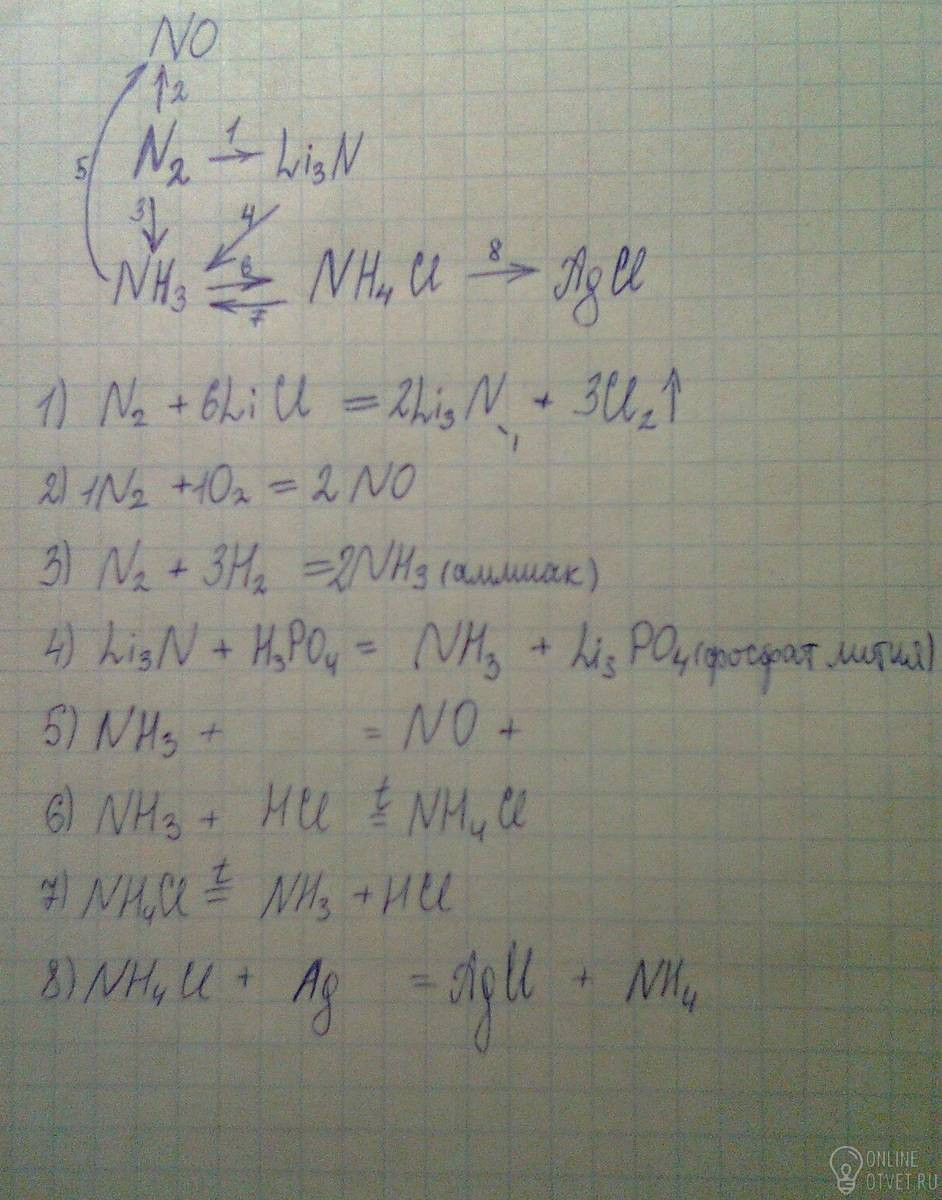 NO
↑2
N₂ →1 Li₃N
5 3↓ 4
NH₃ 6⇄7 NH₄Cl →8 AgCl
1) N₂ + 6LiCl = 2Li₃N + 3Cl₂↑
2) 1N₂ + 1O₂ = 2NO
3) N₂ + 3H₂ = 2NH₃ (аммиак)
4) Li₃N + H₃PO₄ = NH₃ + Li₃PO₄ (фосфат лития)
5) NH₃ + = NO +
6) NH₃ + HCl =ᵗ NH₄Cl
7) NH₄Cl =ᵗ NH₃ + HCl
8) NH₄Cl + Ag = AgCl + NH₄
ONLINE
OTVET.RU